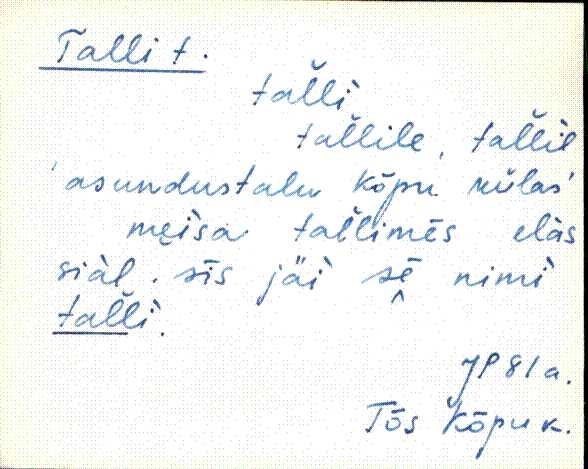 Talli t.
tal̆l̆i
tal̆l̆ile, tal̆l̆il
'asundustalu kõpu külas'
meìsa tal̆l̆imēs elàs
siàl. sīs jäi sē nimi
tal̆l̆i.
JP 81 a.
Tõs Kõpu k.